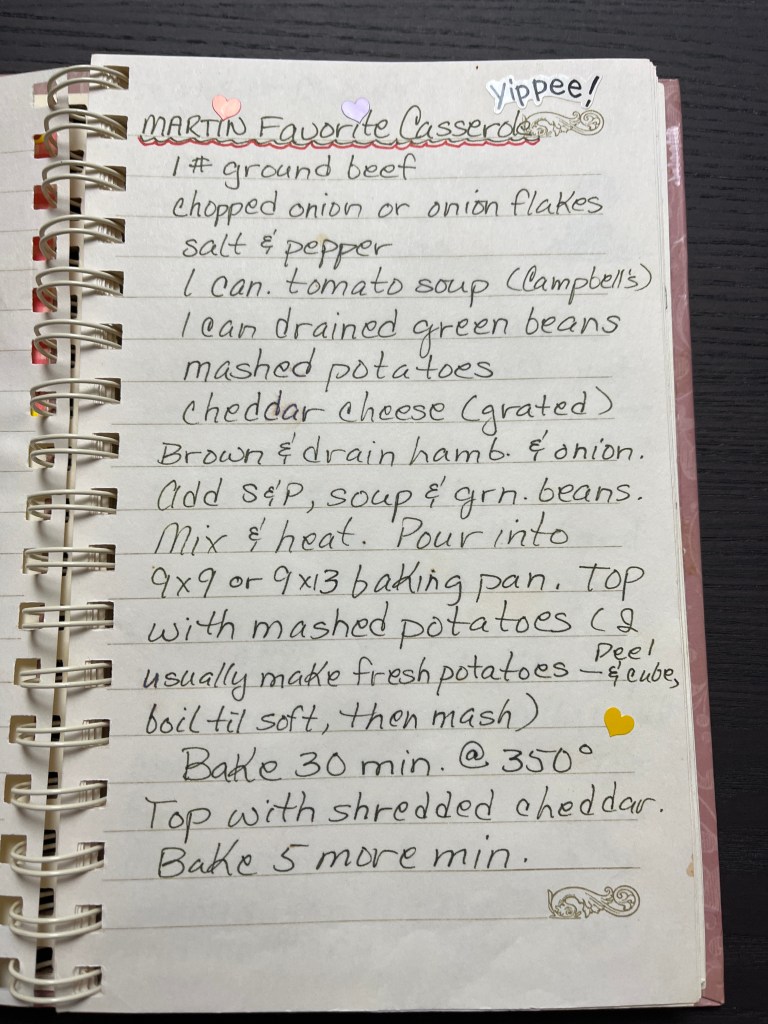 Yippee!
MARTIN Favorite Casserole
1 # ground beef
chopped onion or onion flakes
salt & pepper
1 can. tomato soup (Campbell's)
1 can drained green beans
mashed potatoes
cheddar cheese (grated)
Brown & drain hamb. & onion.
Add S&P, soup & grn. beans.
Mix & heat. Pour into
9x9 or 9x13 baking pan. Top
with mashed potatoes (I
usually make fresh potatoes — Peel & cube,
boil til soft, then mash)
Bake 30 min. @ 350°
Top with shredded cheddar.
Bake 5 more min.